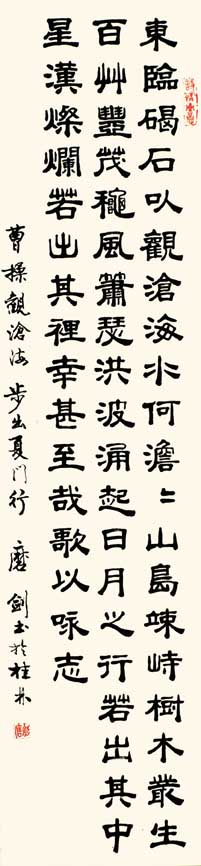 東臨碣石以觀滄海水何澹〻山島竦峙樹木叢生
百艸豐茂龝風蕭瑟洪波涌起日月之行若出其中
星漢燦爛若出其裡幸甚至哉歌以咏志
曹操觀滄海 步出夏門行 磨劍书於桂林